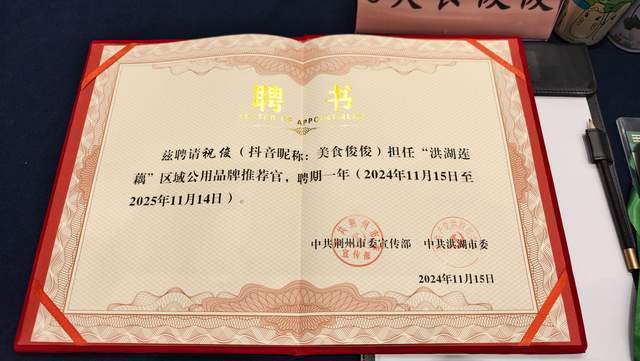 美食俊俊
聘书
LETTER OF APPOINTMENT
兹聘请祝俊（抖音昵称：美食俊俊）担任“洪湖莲
藕”区域公用品牌推荐官，聘期一年（2024年11月15日至
2025年11月14日）。
中共荆州市委宣传部 中共洪湖市委
2024年11月15日